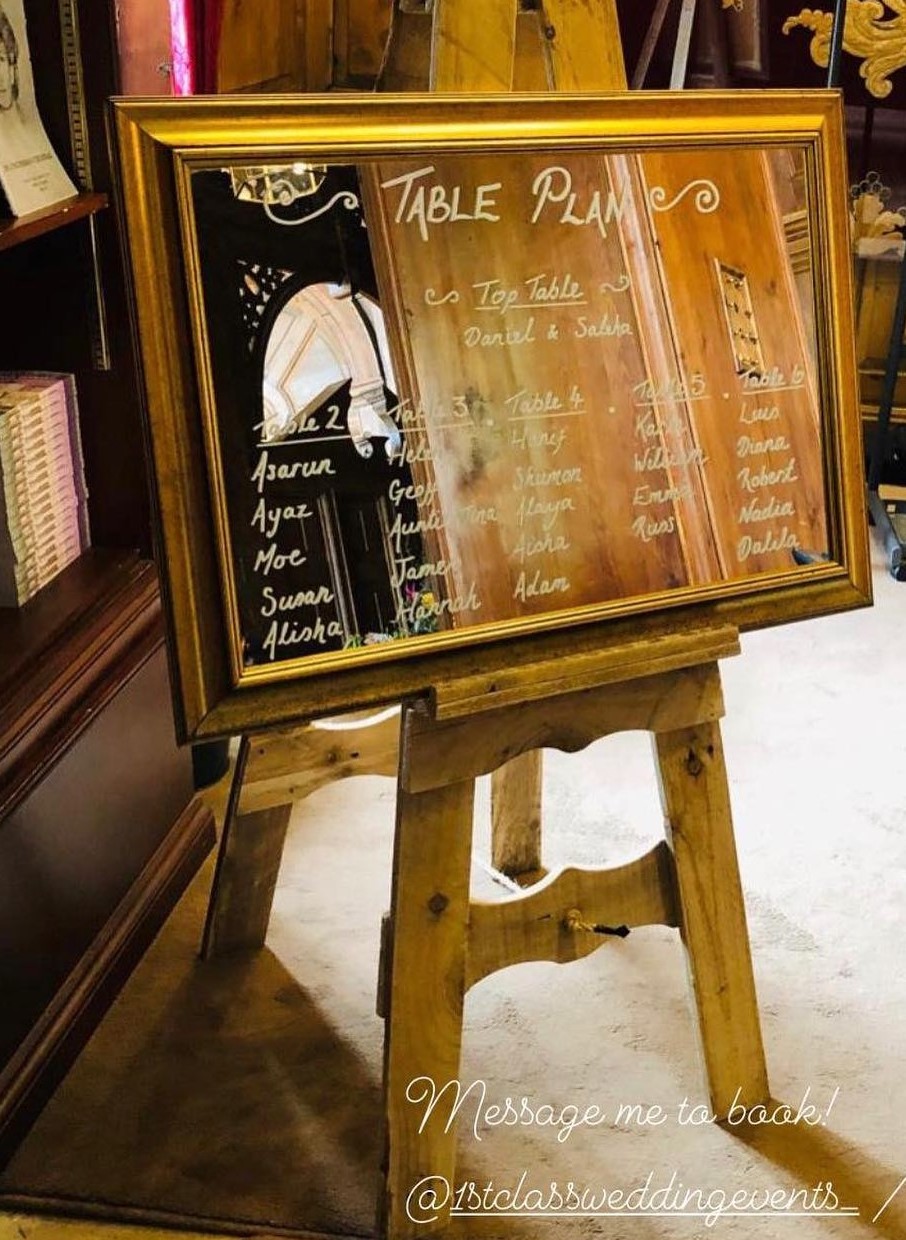 TABLE PLAN
Top Table
Daniel & Saleha
Table 2
Asarun
Ayaz
Moe
Susan
Alisha
Table 3
Helen
Geoff
Auntie Tina
James
Hannah
Table 4
Hanif
Shumon
Alaya
Aisha
Adam
Table 5
William
Emma
Russ
Table 6
Luis
Diana
Robert
Nadia
Dalila
Message me to book!
@1stclassweddingevents_ /